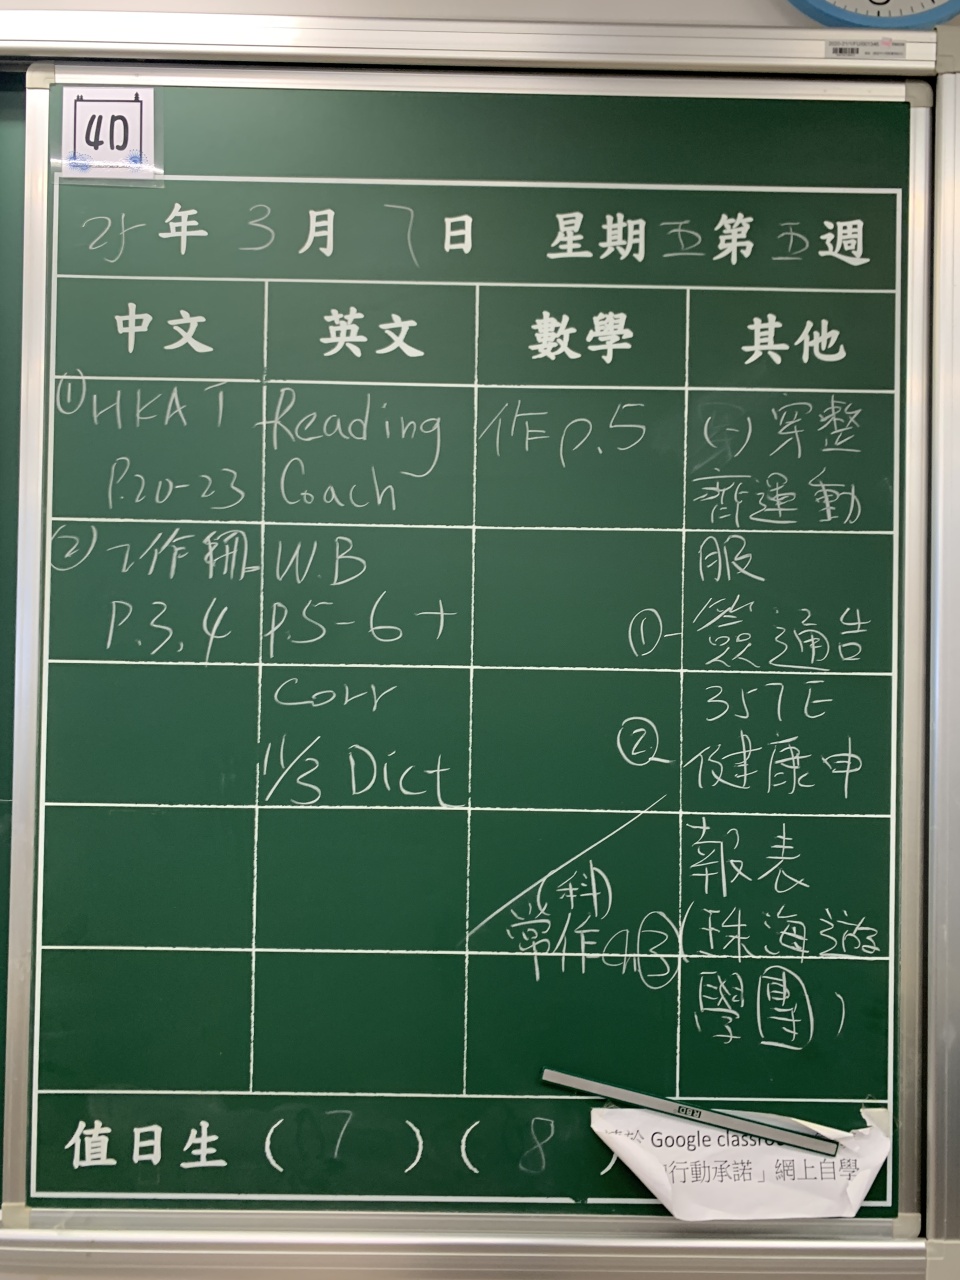 4D
25年3月7日 星期五第五週
中文 英文 數學 其他
①HKAT
P.20-23
②工作冊
P.3,4
Reading
Coach
W.B
p.5-6+
Corr
11/3 Dict
作p.5
(科)
常作
(一)穿整
齊運動
服
①簽通告
357E
②健康申
報表
(珠海遊
學團)
值日生(7)(8)
Google classro
行動承諾」網上自學